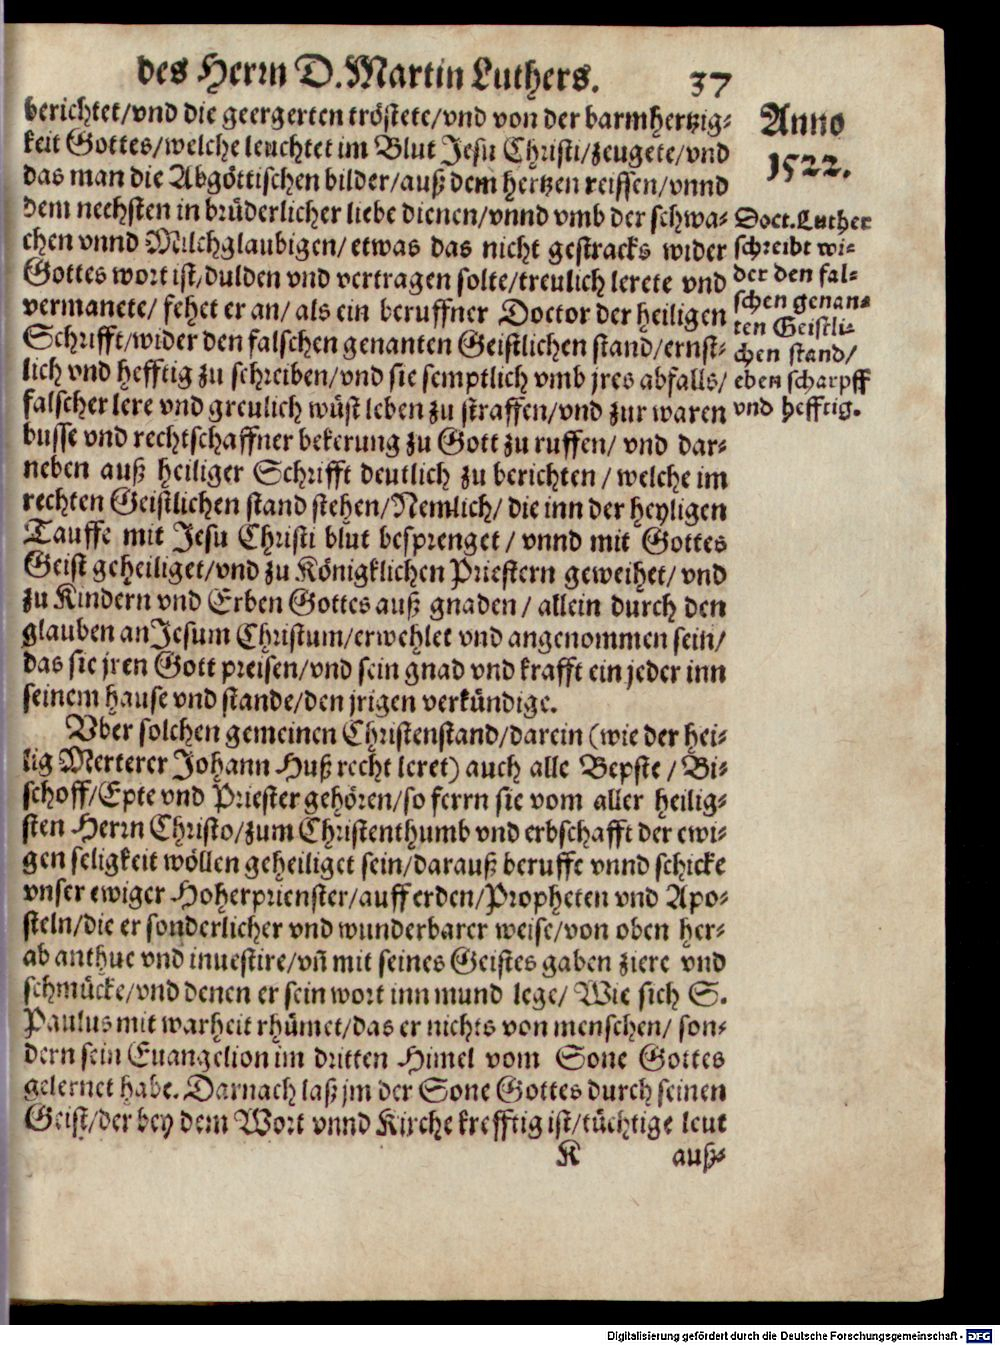 des Herrn D. Martin Luthers. 37
berichtet/vnd die geergerten tröstete/vnd von der barmhertzig-
keit Gottes/welche leuchtet im Blut Jesu Christi/zeugete/vnd
das man die Abgöttischen bilder/auß dem hertzen reissen/vnnd
dem nechsten in brüderlicher liebe dienen/vnnd vmb der schwa-
chen vnnd Milchglaubigen/ etwas das nicht gestracks wider
Gottes wort ist/dulden vnd vertragen solte/treulich lerete vnd
vermanete/ fehet er an/ als ein beruffner Doctor der heiligen
Schrifft/wider den falschen genanten Geistlichen stand/ernst-
lich vnd hefftig zu schreiben/vnd sie semptlich vmb jres abfalls/
falscher lere vnd greulich wüst leben zu straffen/vnd zur waren
busse vnd rechtschaffner bekerung zu Gott zu ruffen/ vnd dar-
neben auß heiliger Schrifft deutlich zu berichten / welche im
rechten Geistlichen stand stehen/Nemlich/ die inn der heyligen
Tauffe mit Jesu Christi blut besprenget / vnnd mit Gottes
Geist geheiliget/vnd zu Königklichen Priestern geweihet/ vnd
zu Kindern vnd Erben Gottes auß gnaden / allein durch den
glauben an Jesum Christum/erwehlet vnd angenommen sein/
das sie jren Gott preisen/vnd sein gnad vnd krafft ein jeder inn
seinem hause vnd stande/den jrigen verkündige.
Vber solchen gemeinen Christenstand/darein (wie der hei-
lig Merterer Johann Huß recht leret) auch alle Bepste / Bi-
schoff/Epte vnd Priester gehören/so ferrn sie vom aller heilig-
sten Herrn Christo/zum Christenthumb vnd erbschafft der ewi-
gen seligkeit wöllen geheiliget sein/darauß beruffe vnnd schicke
vnser ewiger Hoherprienster/auff erden/Propheten vnd Apo-
steln/die er sonderlicher vnd wunderbarer weise/von oben her-
ab anthue vnd inuestire/vñ mit seines Geistes gaben ziere vnd
schmücke/vnd denen er sein wort inn mund lege/ Wie sich S.
Paulus mit warheit rhümet/das er nichts von menschen/ son-
dern sein Euangelion im dritten Himel vom Sone Gottes
gelernet habe. Darnach laß jm der Sone Gottes durch seinen
Geist/der bey dem Wort vnnd Kirche krefftig ist/tüchtige leut
K auß-
Anno
1522.
Doct. Luther
schreibt wi-
der den fal-
schen genan-
ten Geistli-
chen stand/
eben scharpff
vnd hefftig.
Digitalisierung gefördert durch die Deutsche Forschungsgemeinschaft - DFG